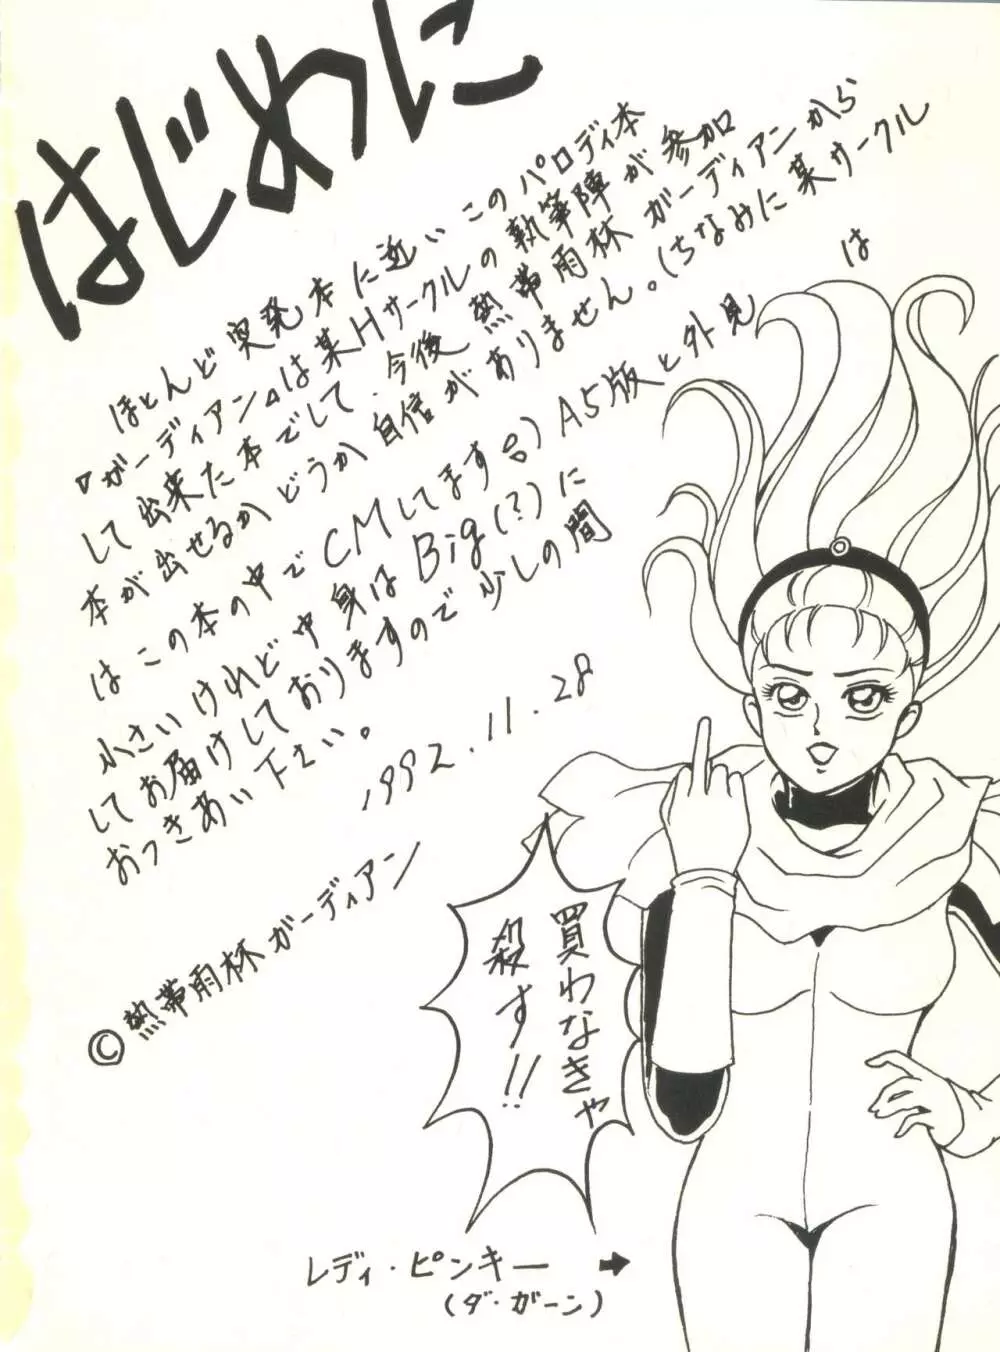 はじめに
ほとんど突発本に近いこのパロディ本
『ガーディアン』は某Hサークルの執筆陣が参加
して出来た本でして、今後熱帯雨林ガーディアンから
本が出せるかどうか自信がありません。(ちなみに某サークル
はこの本の中でCMしてます台)A5版と外見は
小さいけれど中身はBig(?)に
してお届けしておりますので少しの間
おつきあい下さい。
1992.11.28
©熱帯雨林ガーディアン
買わなきゃ
殺す!!
レディ・ピンキー →
(ダ・ガーン)